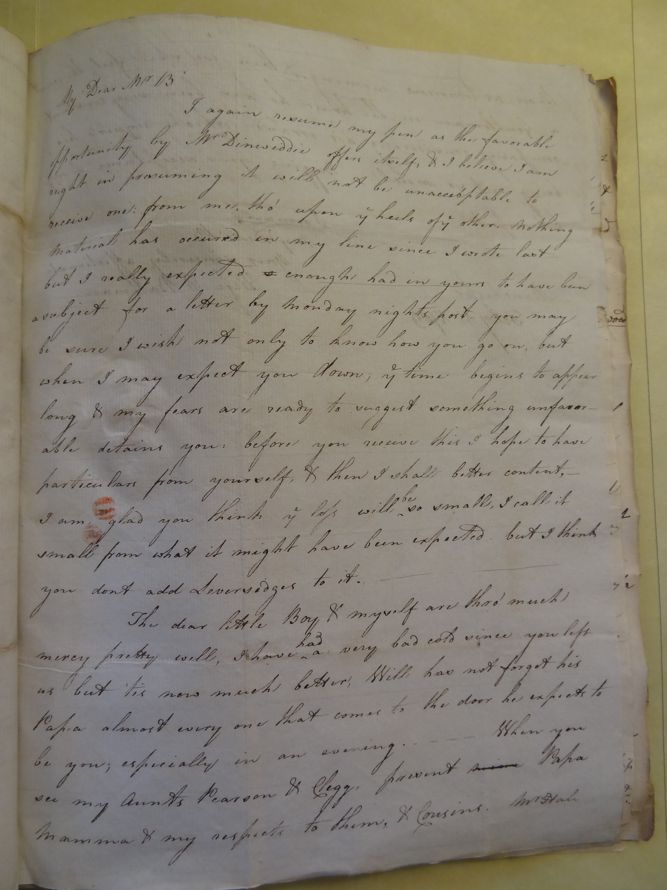 My Dear Mr B
I again resume my pen as the favorable
opportunity by Mr Dinwiddie offers itself, & I believe I am
right in presuming it will not be unacceptable to
receive one from me, tho' upon ye heels of ye other. Nothing
Material has occured in my line since I wrote last
but I really expected enough had in yours to have been
a subject for a letter by Monday nights post. you may
be sure I wish not only to know how you go on, but
when I may expect you down, ye time begins to appear
long & my fears are ready to suggest something unfavor-
able detains you: before you receive this I hope to have
particulars from yourself, & then I shall better content.
I am glad you think ye loss will be so small, I call it
small from what it might have been expected but I think
you dont add Leversedges to it.
The dear little Boy & myself are thro' much
mercy pretty well, I have had a very bad cold since you left
us but 'tis now much better, Will has not forgot his
Papa almost every one that comes to the door he expects to
be you; especially in an evening. When you
see my Aunts Pearson & Clegg, present Papa
Mamma & my respects to them, & Cousins. Mr Hale